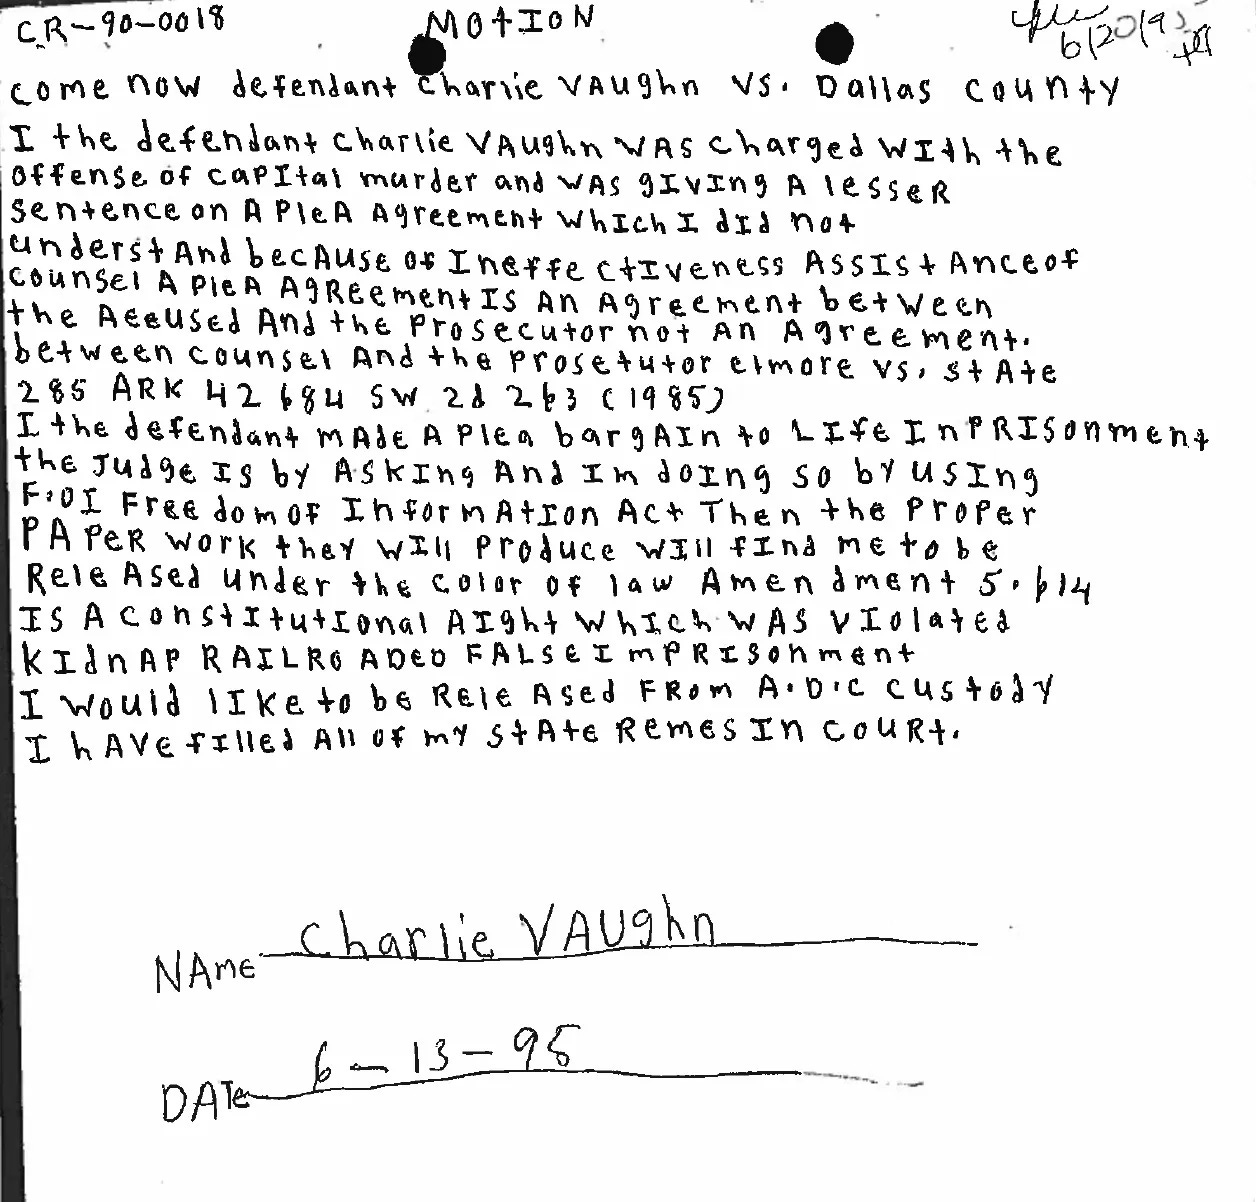 CR-90-0018 MOtION
6/20/95
come now defendant Charlie VAughn VS. Dallas county
I the defendant charlie VAughn WAS charged WIth the
offense of capItal murder and WAS gIVIng A lesseR
Sentence on A PleA Agreement WhIch I dId not
understAnd becAuse of IneffectIveness AssIstAnce of
counsel A PleA AgReement IS An Agreement between
the Aeeused And the Prosecutor not An Agreement.
between counsel And the Prosetutor elmore vs. stAte
285 ARK 42 684 SW 2d 263 (1985)
I the defendant mAde A Plea bargAIn to LIfe InPRISonment
the Judge IS by ASKIng And Im doIng so by usIng
F.OI Freedom of InformAtIon Act Then the Proper
PAPeR work they WIll Produce WIll fInd me to be
ReleAsed under the color of law Amendment 5. 614
IS A constItutIonal AIght WhIch WAS VIolated
KIdnAP RAILROADED FALSe ImPRISonment
I would lIKe to be ReleAsed FRom A.D.C custody
I hAVe fIlled All of my stAte Remes In couRt.
NAme Charlie VAUghn
DATe 6-13-95